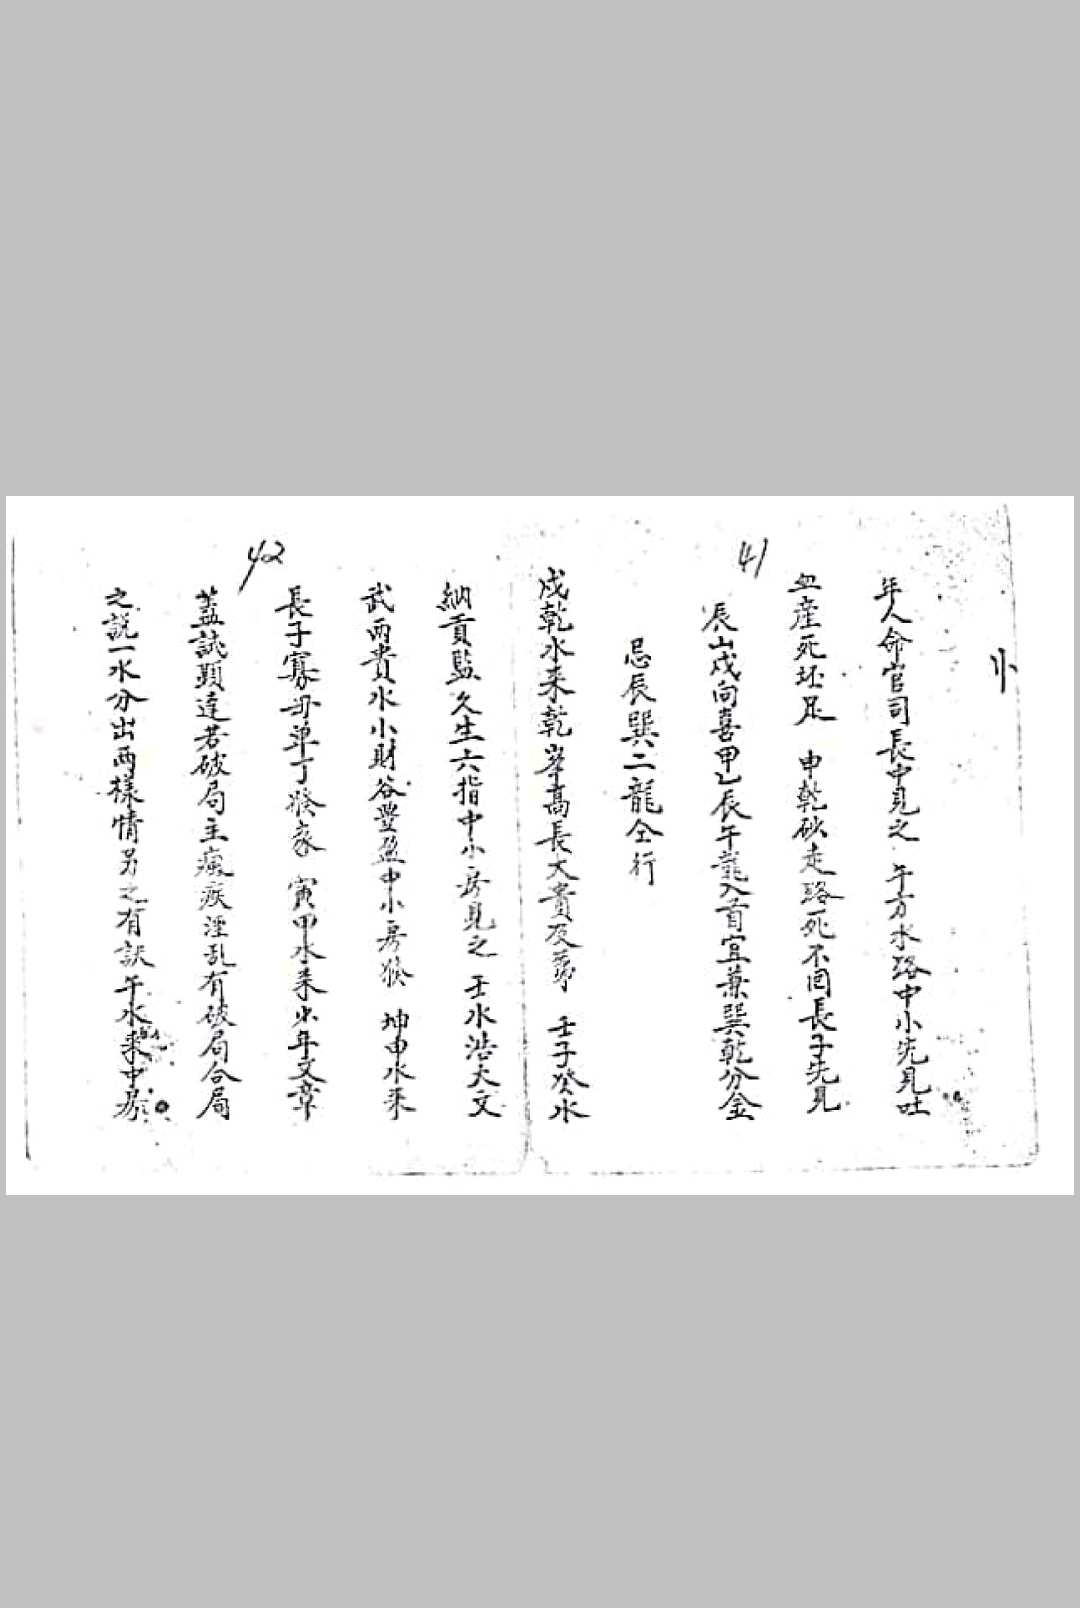 41
年人命官司長中見之 午方水路中小先見吐
血産死坯足 申乾砂走路死不回長子先見
辰山戍向喜甲乙辰午龍入首宜兼巽乾分金
忌辰巽二龍仝行
戍乾水来乾峯高長大貴及第 壬子癸水
42
納貢監久生六指中小房見之 壬水浩大文
武兩貴水小財谷豐盈中小房發 坤申水来
長子寡母單丁發家 寅甲水来少年文章
蓋誥顕達若破局主瘋疾淫乱有破局合局
之説一水分出两樣情另之有訣午水来中房